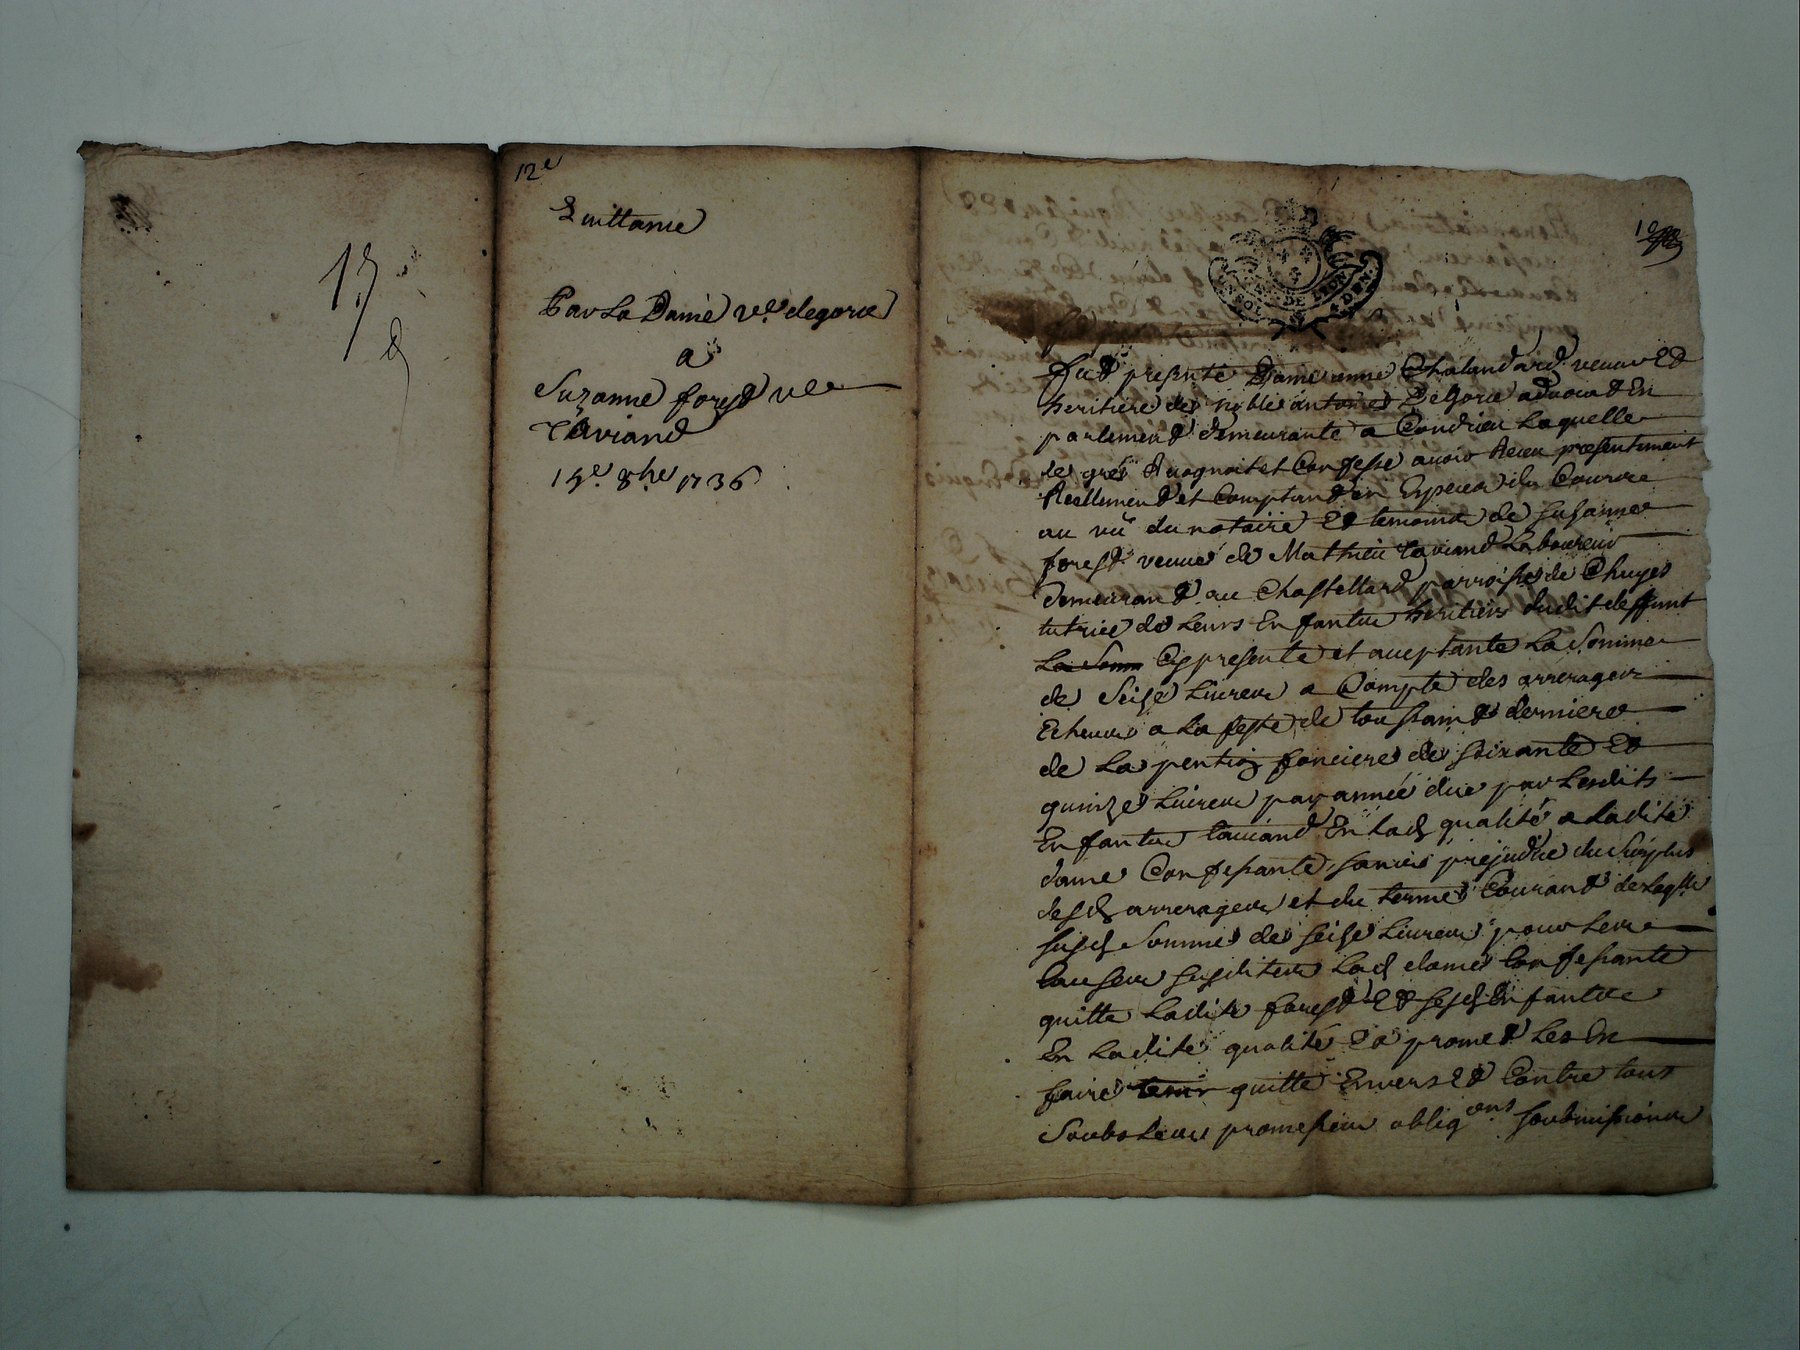 12e
Quittance
Par La Dame ve. degorce
a
Suzanne forest ve
Taviand
15e. 8bre 1736
GEN. DE LYON
Fut presente Dame anne Chalandard veuve Et
heritiere de Noble antoine DeGorce advocat En
parlement demeurante a Condrieu Laquelle
de gré Recognoit et Confesse avoir Receu presentement
Reellement et Comptant En Especes du Cource
au vû du notaire Et temoins de Suzanne
forest veuve de Mathieu taviand Laboureur
demeurant au Chastellard parroisse de Chuyes
tutrice de Leurs Enfants heritiers dudit deffunt
La Som Cy presente et acceptante La Somme
de Seize Livres a Compte des arrerages
Echeus a La feste de toussaint derniere
de La pention fonciere de soixante Et
quinze Livres par année due par Lesdits
Enfants taviand En Lad qualité a Ladite
dame Confessante sans prejudice du Surplus
desd arrerages et du terme Courant de Laqlle
susd Somme de seize Livres pour Les
Causes susdites Lad dame Confessante
quitte Ladite forest Et sesd Enfants
En Ladite qualité Et promet Les En
faire tenir quitte Envers Et Contre tous
Soubs Les promesses obligons soubmissions